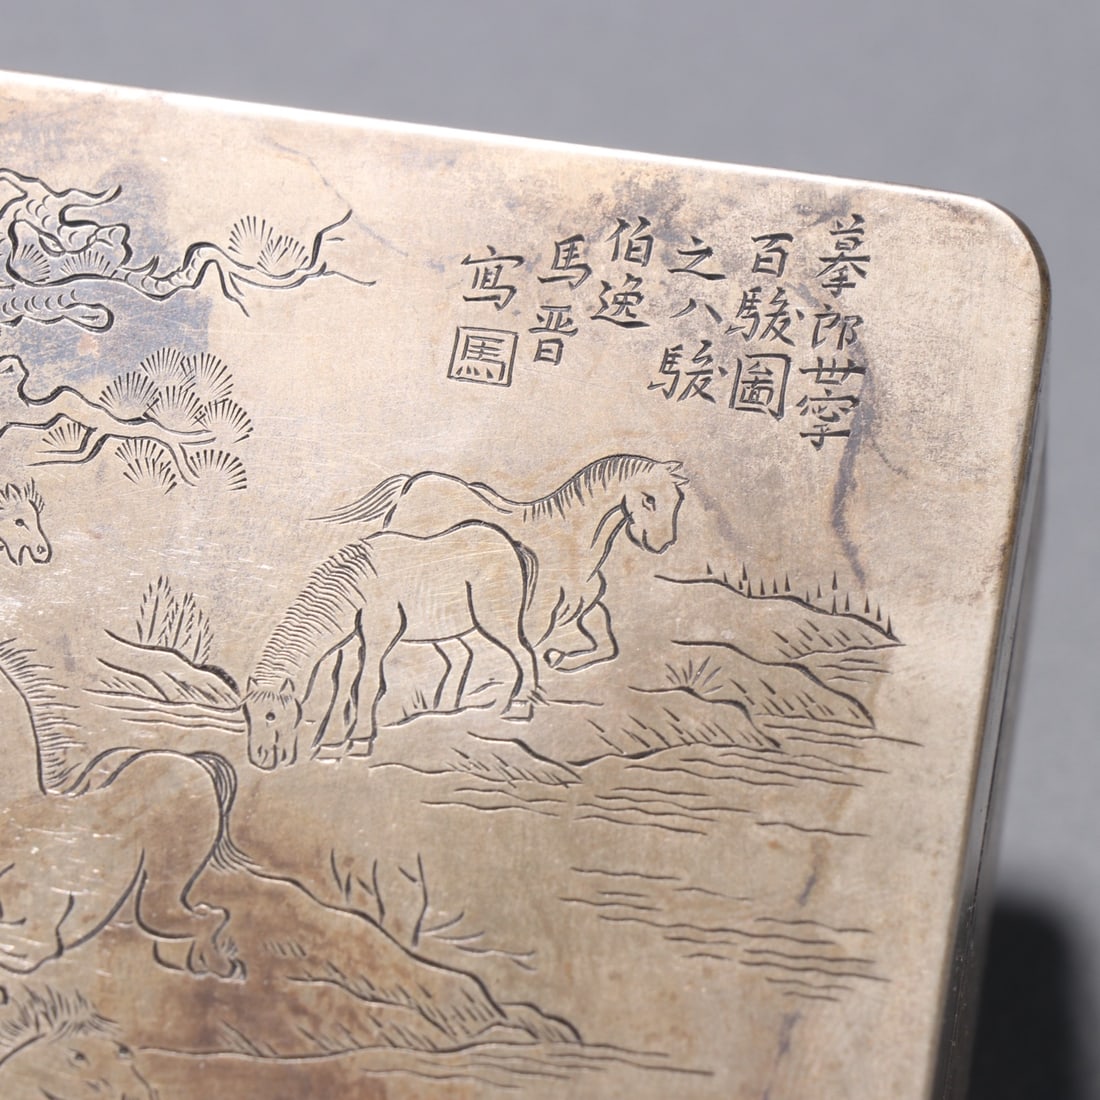 摹郎世寧
百駿圖
之八駿
伯逸
馬晋
寫
馬